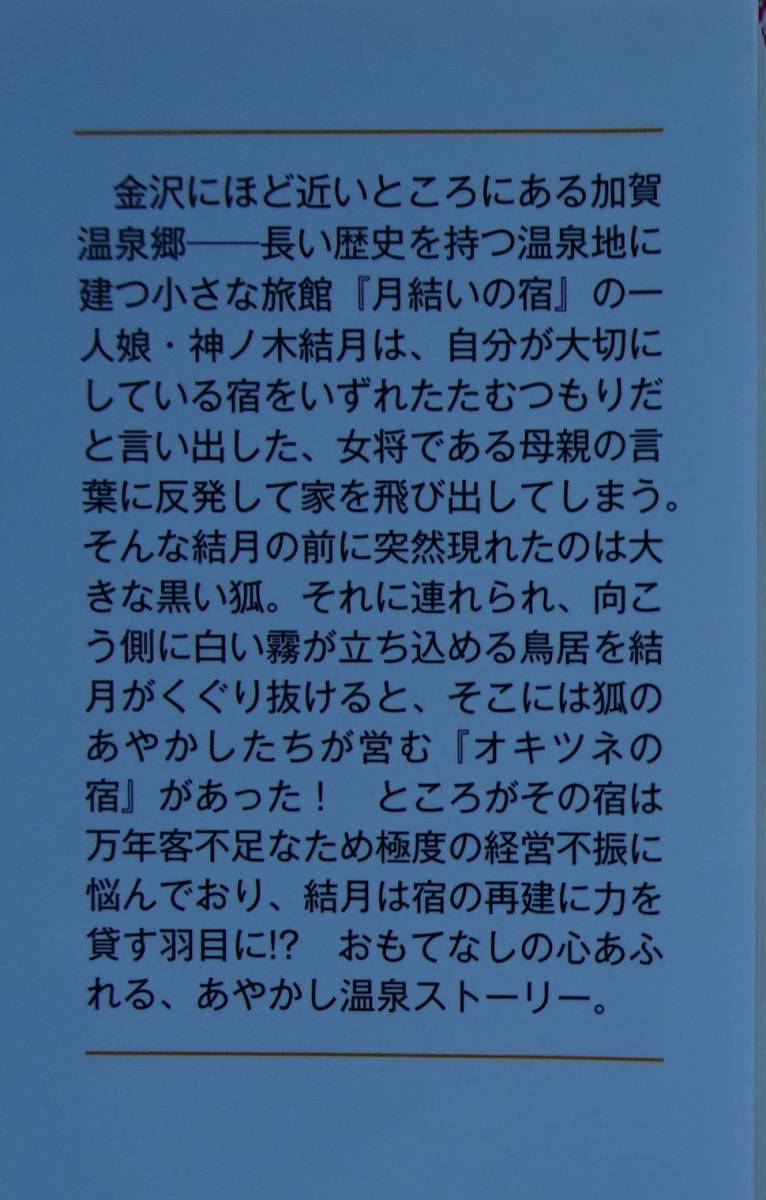 金沢にほど近いところにある加賀
温泉郷――長い歴史を持つ温泉地に
建つ小さな旅館『月結いの宿』の一
人娘・神ノ木結月は、自分が大切に
している宿をいずれたたむつもりだ
と言い出した、女将である母親の言
葉に反発して家を飛び出してしまう。
そんな結月の前に突然現れたのは大
きな黒い狐。それに連れられ、向こ
う側に白い霧が立ち込める鳥居を結
月がくぐり抜けると、そこには狐の
あやかしたちが営む『オキツネの
宿』があった！　ところがその宿は
万年客不足なため極度の経営不振に
悩んでおり、結月は宿の再建に力を
貸す羽目に!?　おもてなしの心あふ
れる、あやかし温泉ストーリー。